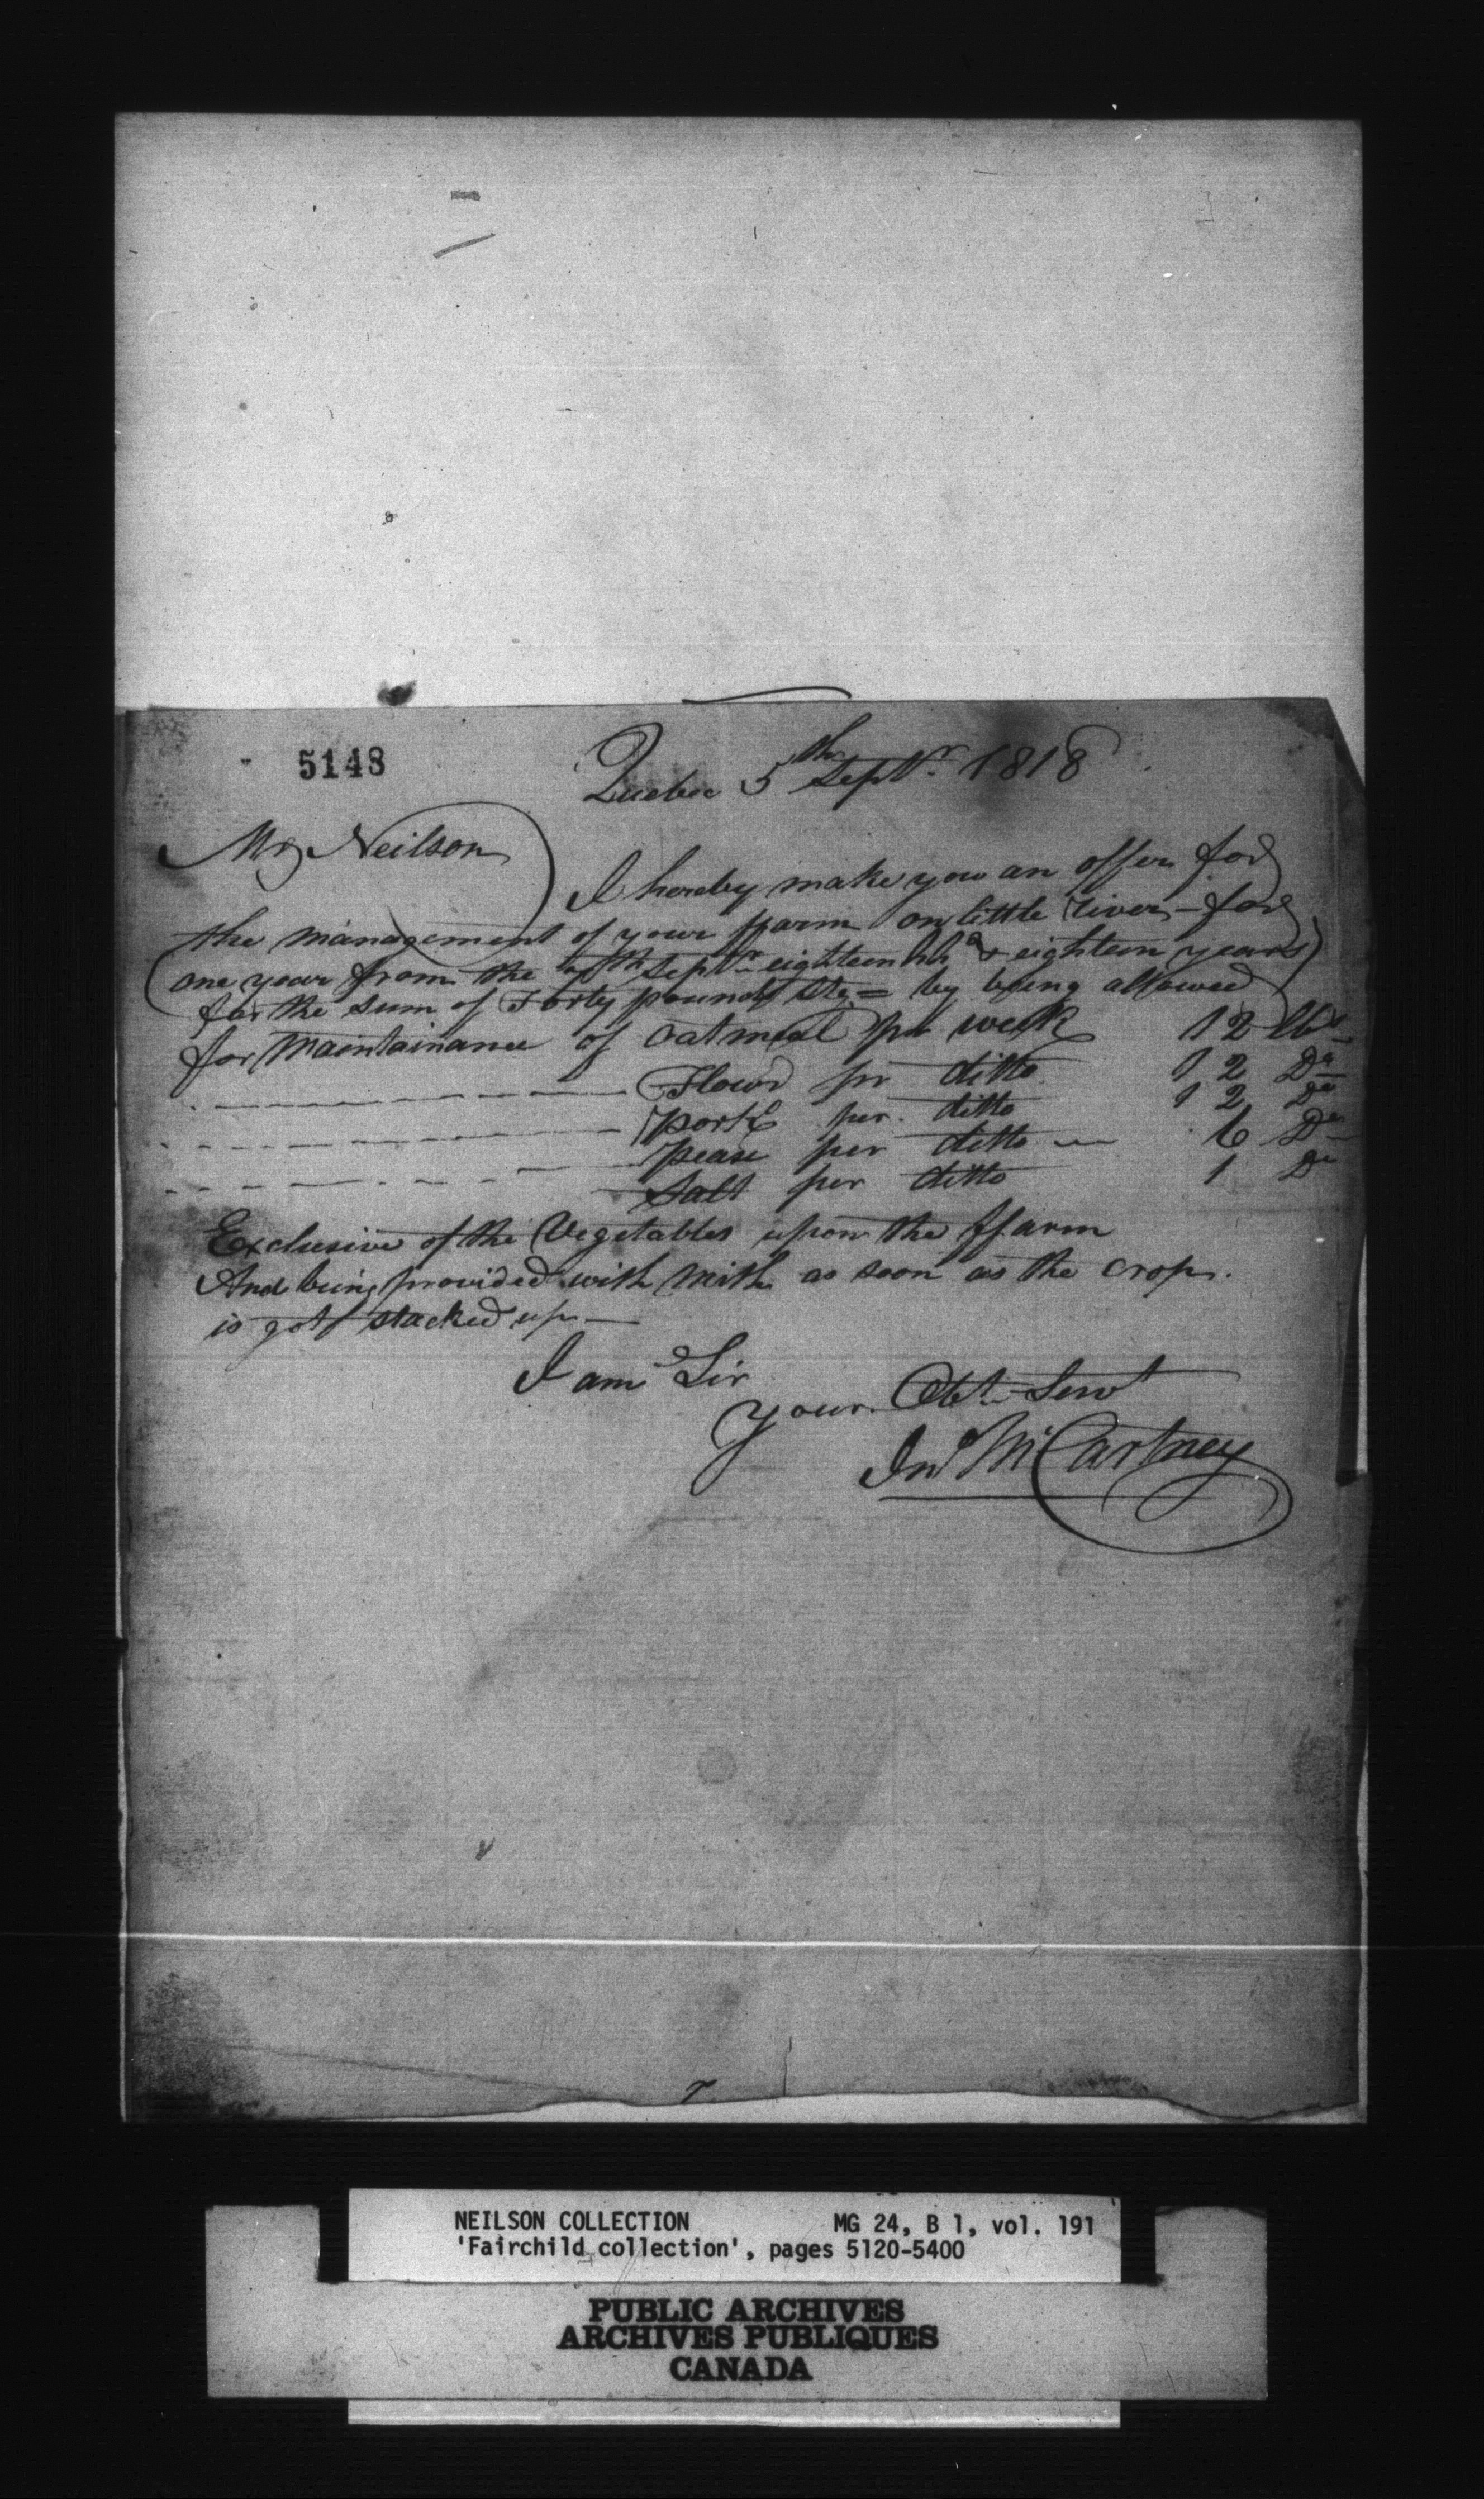 5148
Quebec 5th Septr. 1818
Mr Neilson
I hereby make you an offer for
the management of your ffarm on little River – for
one year from the Septr eighteen hhd & eighteen years
for the sum of Forty pounds Stg = by being allowed
for Maintainance of Oatmeal pr week 12 lbs
Flour pr ditto 12 Do
Pork per ditto 12 Do
Pease per ditto 6 Do
Salt per ditto 1 Do
Exclusive of the Vegetables upon the ffarm
And being provided with Milk as soon as the crop
is got stacked up –
I am Sir
your Obt Servt
Jno McCartney
NEILSON COLLECTION MG 24, B 1, vol. 191
'Fairchild collection', pages 5120-5400
PUBLIC ARCHIVES
ARCHIVES PUBLIQUES
CANADA